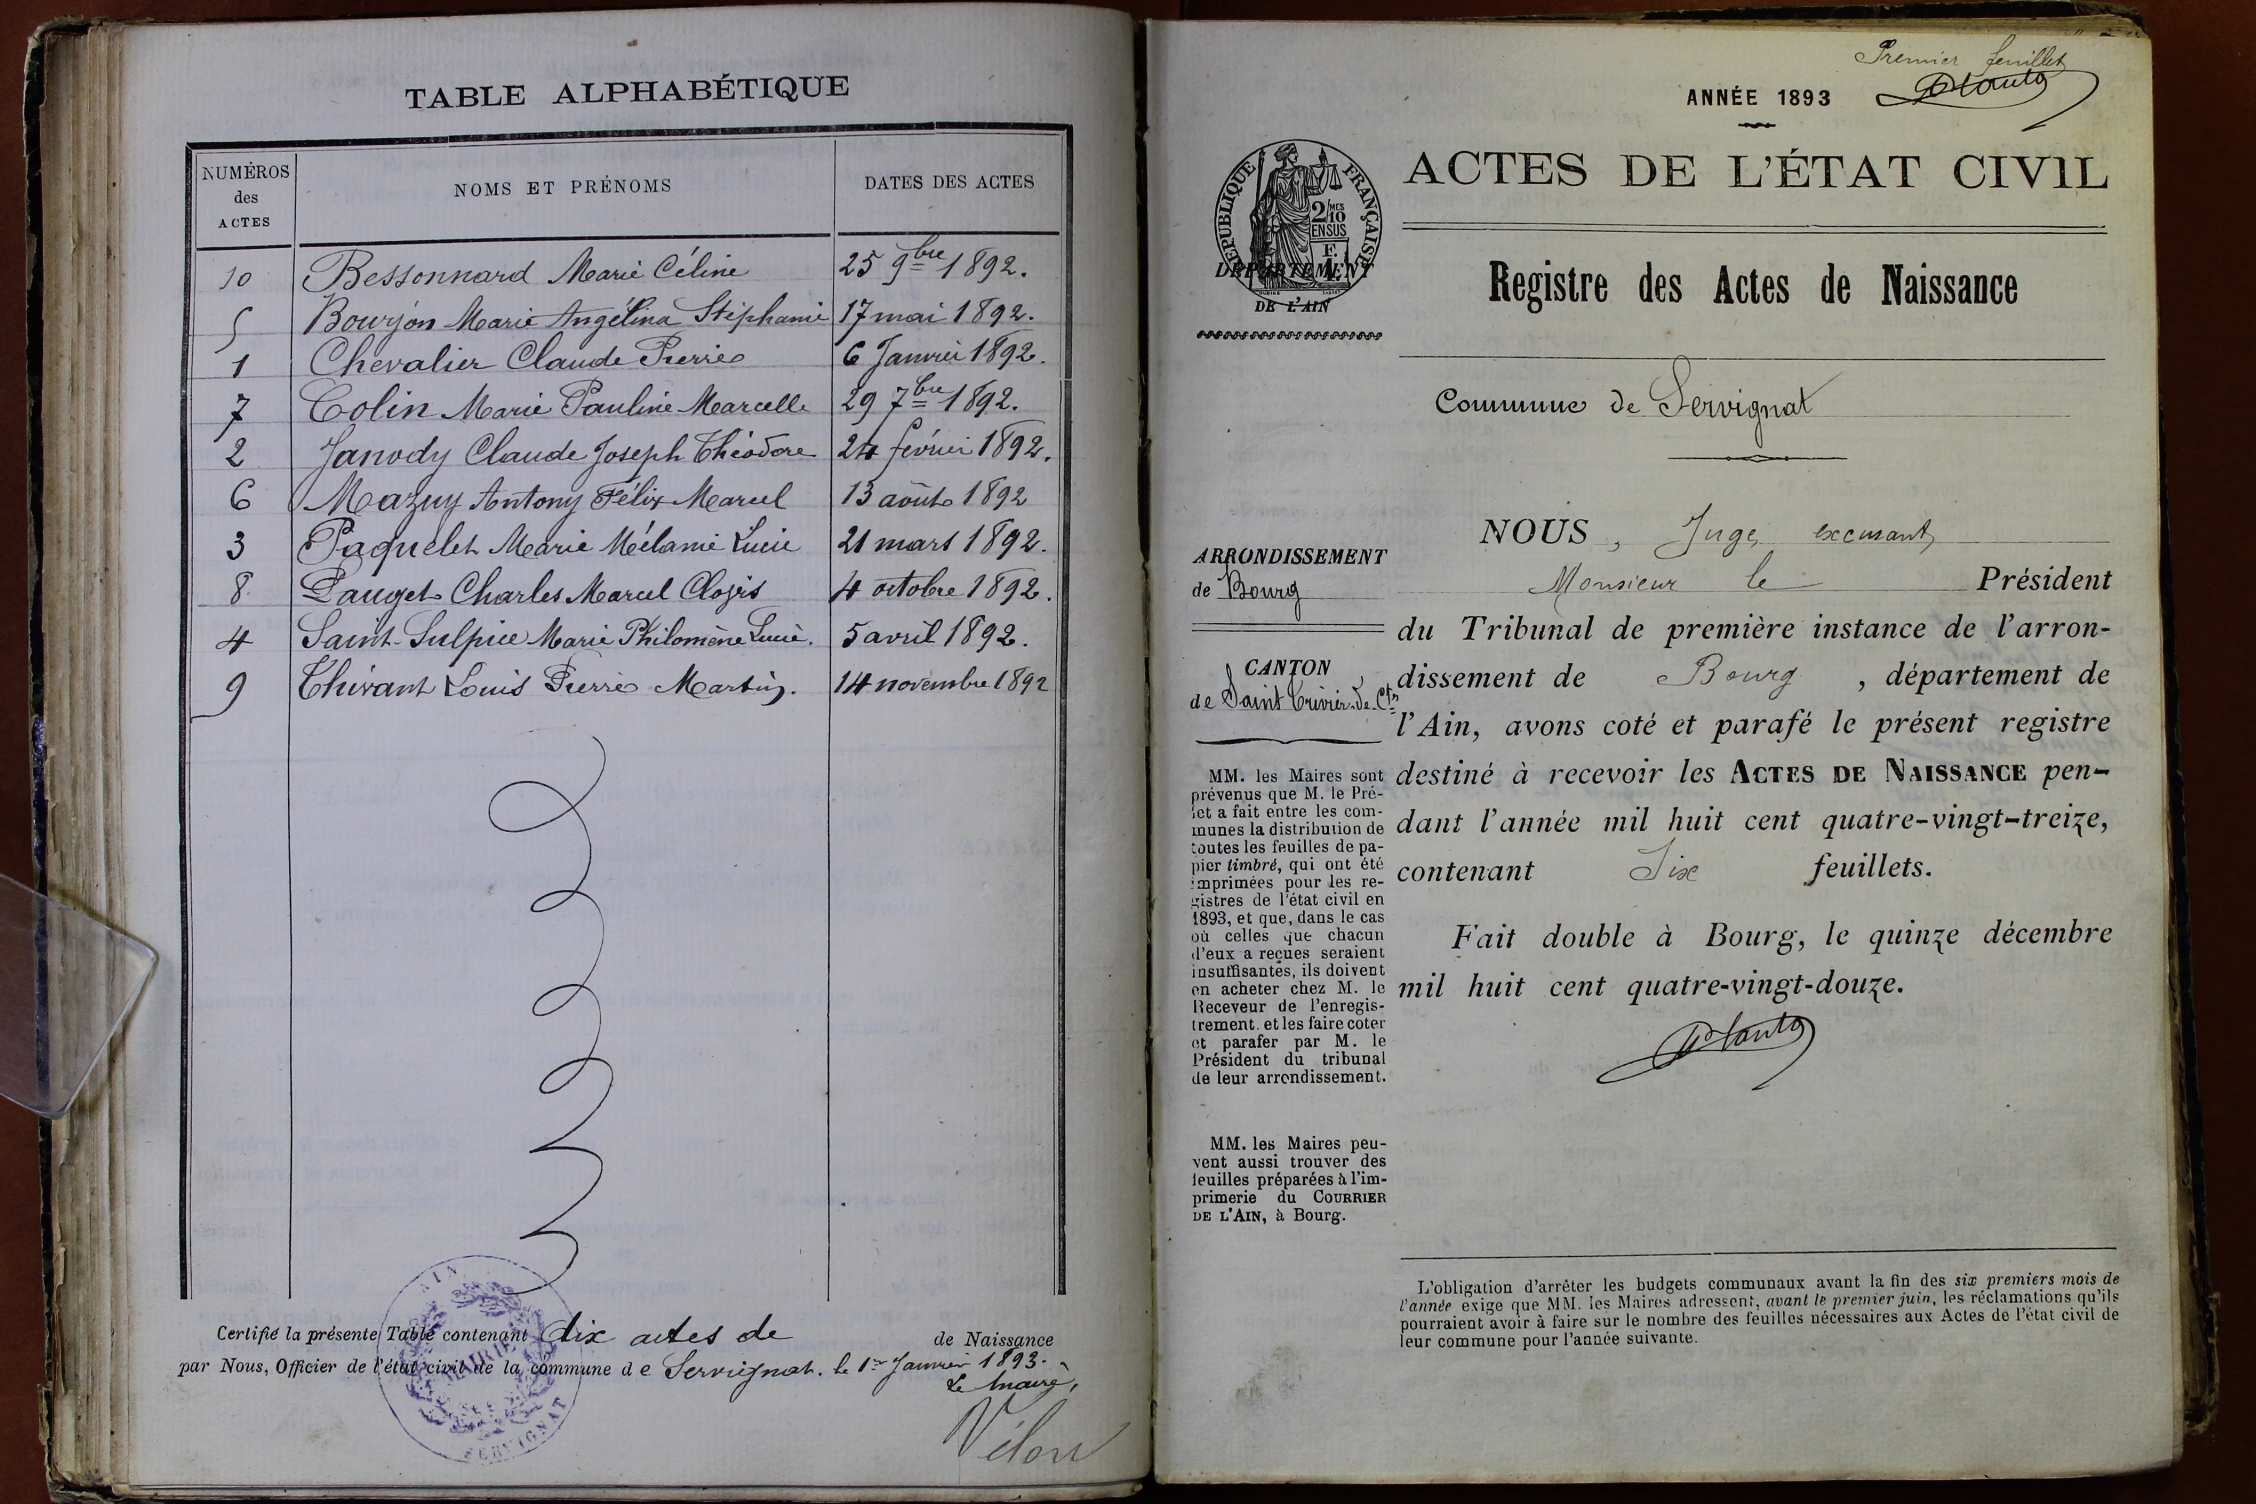 TABLE ALPHABÉTIQUE
NUMÉROS des ACTES
NOMS ET PRÉNOMS
DATES DES ACTES
10 Bessonnard Marie Céline 25 9bre 1892.
5 Bourjon Marie Angélina Stéphanie 17 mai 1892.
1 Chevalier Claude Pierre 6 Janvier 1892.
7 Colin Marie Pauline Marcelle 29 7bre 1892.
2 Janody Claude Joseph Théodore 24 février 1892.
6 Mazuy Antony Félix Marcel 13 août 1892
3 Paquelet Marie Mélanie Lucie 21 mars 1892.
8 Pauget Charles Marcel Clovis 4 octobre 1892.
4 Saint-Sulpice Marie Philomène Lucie. 5 avril 1892.
9 Thivant Louis Pierre Martin. 14 novembre 1892
Certifié la présente Table contenant dix actes de de Naissance
par Nous, Officier de l'état civil de la commune de Servignat. le 1er Janvier 1893.
Le Maire,
Vélon
AIN
MAIRIE
SERVIGNAT
Premier feuillet
ANNÉE 1893
ACTES DE L'ÉTAT CIVIL
RÉPUBLIQUE FRANÇAISE
2/10 MES
EN SUS
DÉPARTEMENT
DE L'AIN
Registre des Actes de Naissance
Commune de Servignat
ARRONDISSEMENT
de Bourg
CANTON
de Saint Trivier-de-Cts
MM. les Maires sont
prévenus que M. le Pré-
fet a fait entre les com-
munes la distribution de
toutes les feuilles de pa-
pier timbré, qui ont été
imprimées pour les re-
gistres de l'état civil en
1893, et que, dans le cas
où celles que chacun
d'eux a reçues seraient
insuffisantes, ils doivent
en acheter chez M. le
Receveur de l'enregis-
trement. et les faire coter
et parafer par M. le
Président du tribunal
de leur arrondissement.
MM. les Maires peu-
vent aussi trouver des
feuilles préparées à l'im-
primerie du COURRIER
DE L'AIN, à Bourg.
NOUS, Juge, excusant,
Monsieur le Président
du Tribunal de première instance de l'arron-
dissement de Bourg, département de
l'Ain, avons coté et parafé le présent registre
destiné à recevoir les ACTES DE NAISSANCE pen-
dant l'année mil huit cent quatre-vingt-treize,
contenant Six feuillets.
Fait double à Bourg, le quinze décembre
mil huit cent quatre-vingt-douze.
L'obligation d'arrêter les budgets communaux avant la fin des six premiers mois de
l'année exige que MM. les Maires adressent, avant le premier juin, les réclamations qu'ils
pourraient avoir à faire sur le nombre des feuilles nécessaires aux Actes de l'état civil de
leur commune pour l'année suivante.